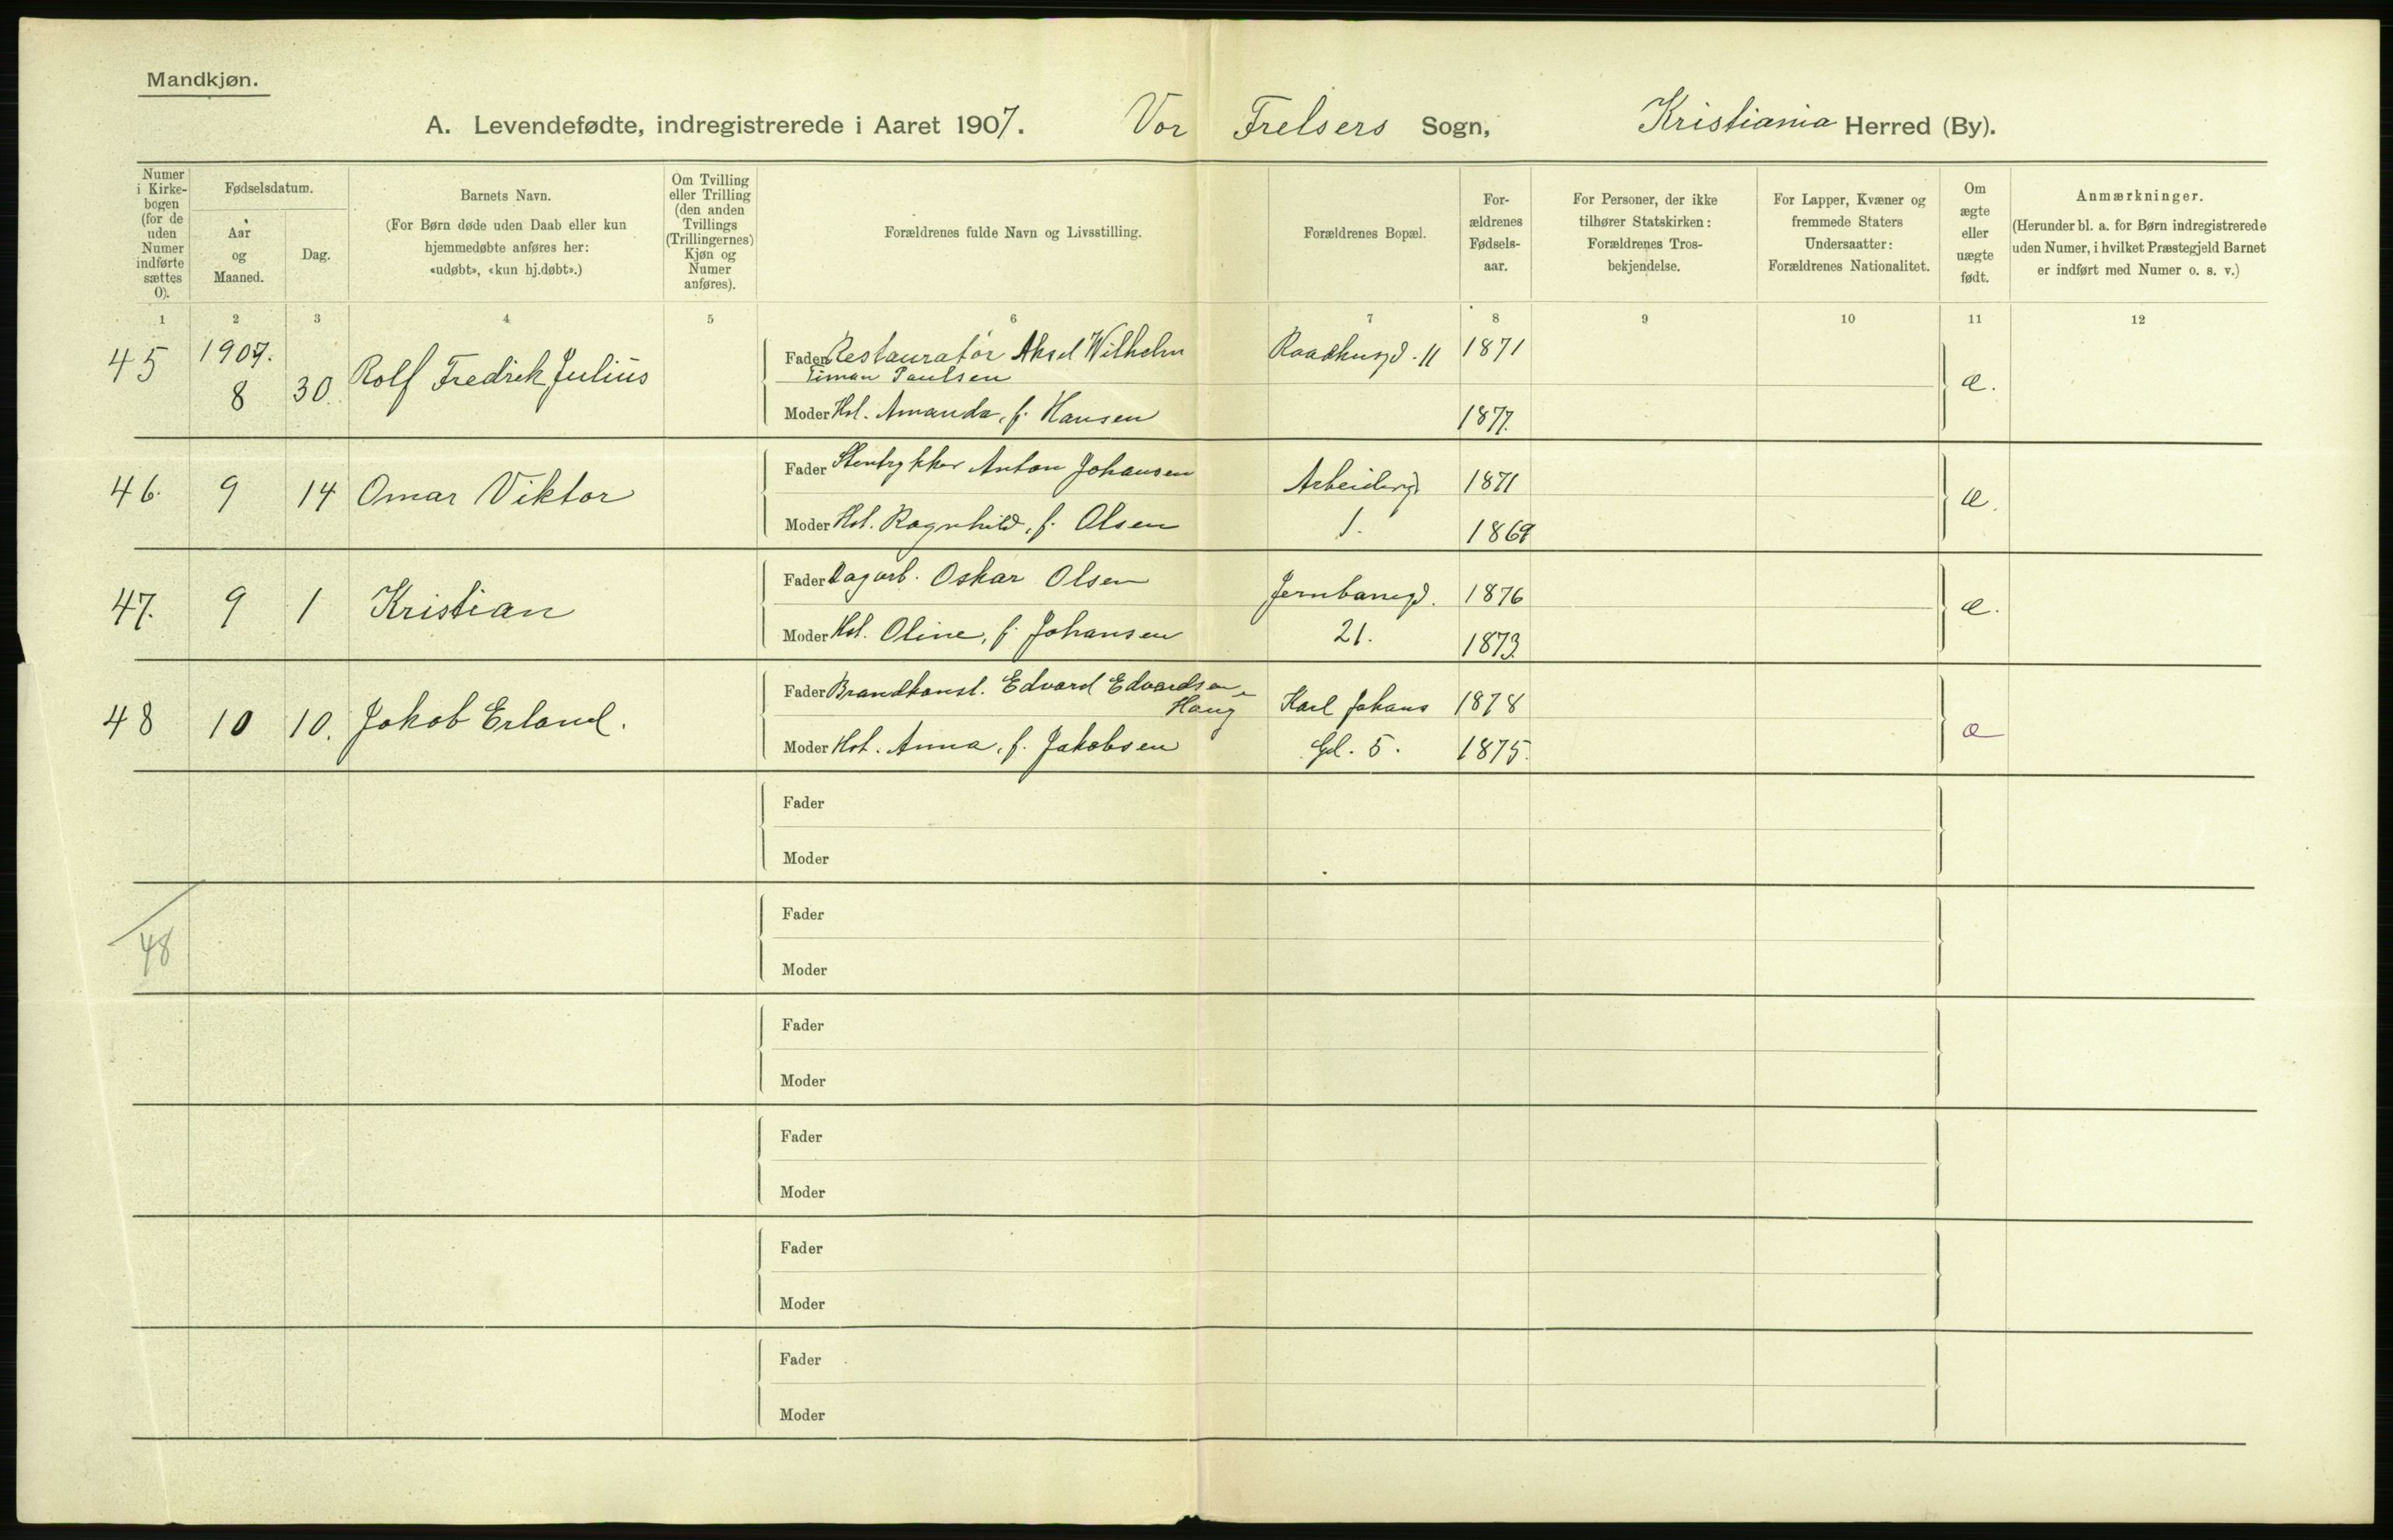 Mandkjøn.
A. Levendefødte, indregistrerede i Aaret 1907. Vor Frelsers Sogn, Kristiania Herred (By).
Numer i Kirkebogen (for de uden Numer indførte sættes 0).
Fødselsdatum.
Aar og Maaned.
Dag.
Barnets Navn.
(For Børn døde uden Daab eller kun hjemmedøbte anføres her: «udøbt», «kun hj.døbt».)
Om Tvilling eller Trilling (den anden Tvillings (Trillingernes) Kjøn og Numer anføres).
Forældrenes fulde Navn og Livsstilling.
Forældrenes Bopæl.
Forældrenes Fødselsaar.
For Personer, der ikke tilhører Statskirken: Forældrenes Trosbekjendelse.
For Lapper, Kvæner og fremmede Staters Undersaatter: Forældrenes Nationalitet.
Om ægte eller uægte født.
Anmærkninger.
(Herunder bl. a. for Børn indregistrerede uden Numer, i hvilket Præstegjeld Barnet er indført med Numer o. s. v.)
1 2 3 4 5 6 7 8 9 10 11 12
45 1907. 8 30. Rolf Fredrik Julius
Fader Restauratør Aksel Wilhelm Paulsen Raadhusgd. 11 1871
Moder Hst. Amanda, f. Hansen 1877. æ.
46. 9 14 Omar Viktor
Fader Stentrykker Anton Johansen Arbeidergd. 1871
Moder Hst. Ragnhild, f. Olsen 1. 1869 æ.
47. 9 1 Kristian
Fader Dagarb. Oskar Olsen Jernbanegd. 1876
Moder Hst. Oline, f. Johansen 21. 1873. æ.
48 10 10. Jakob Erland.
Fader Brandkonst. Edvard Edvardsen Haug Karl Johans 1878
Moder Hst. Anna, f. Jakobsen Gd. 5. 1875. æ
Fader
Moder
48
Fader
Moder
Fader
Moder
Fader
Moder
Fader
Moder
Fader
Moder